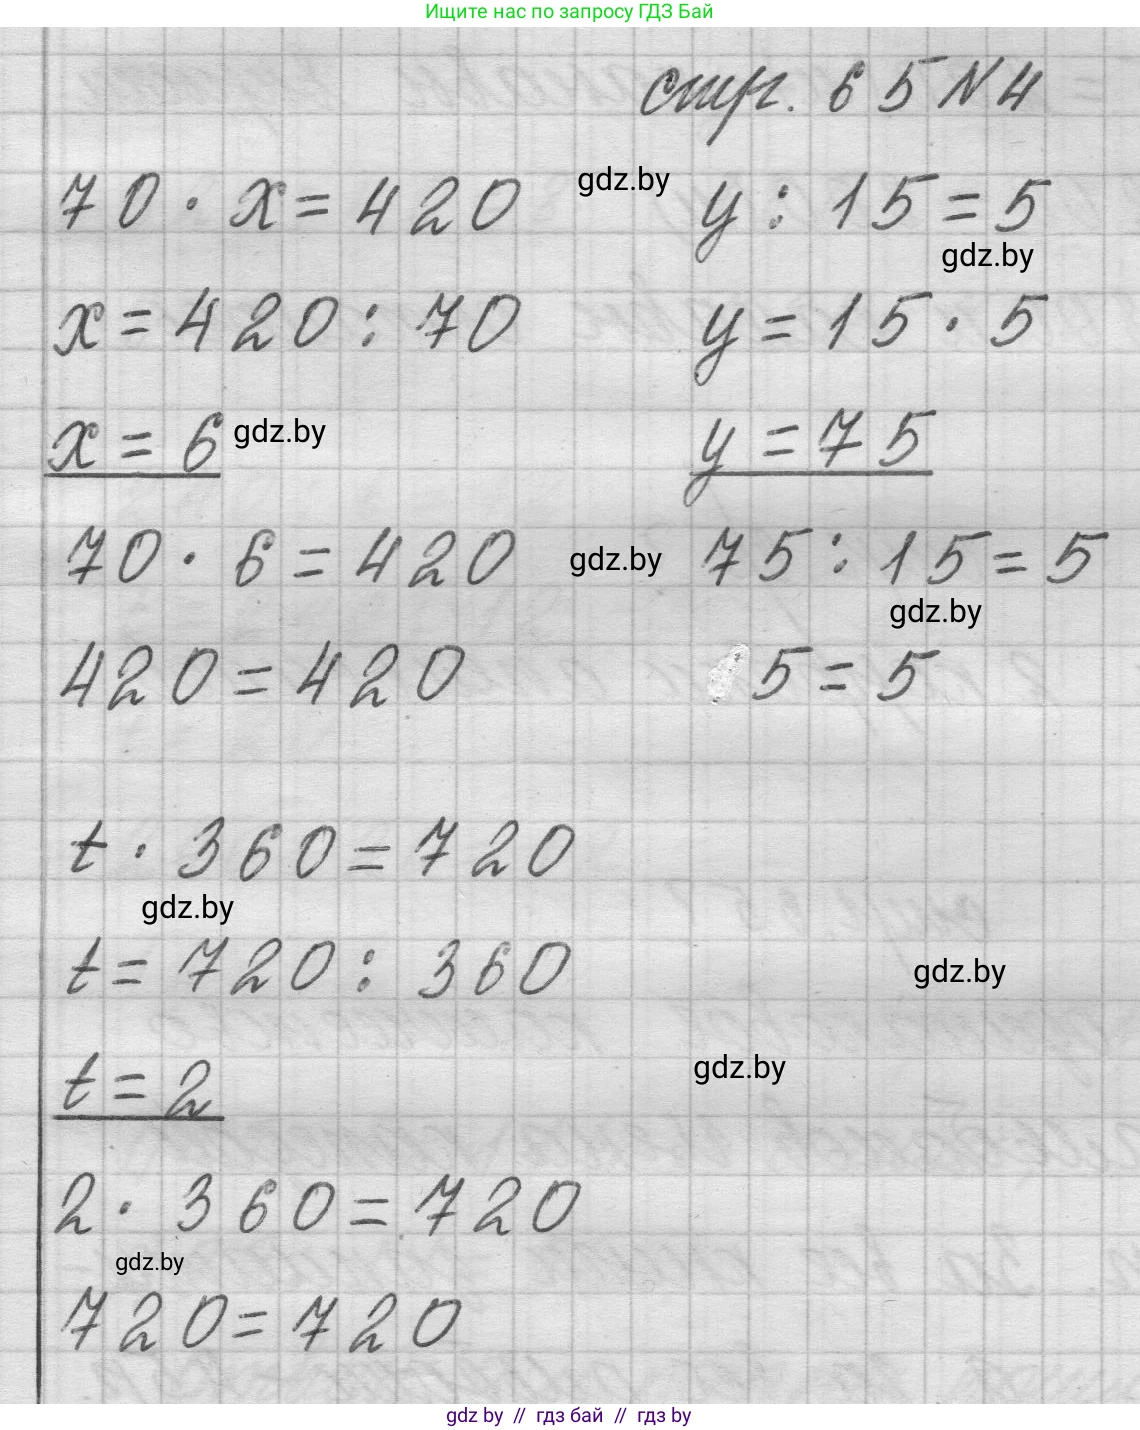 Ищите нас по запросу ГДЗ Бай
стр. 65 N 4
70 · x = 420
gdz.by
y : 15 = 5
gdz.by
x = 420 : 70
y = 15 · 5
x = 6
gdz.by
y = 75
70 · 6 = 420
gdz.by
75 : 15 = 5
gdz.by
420 = 420
5 = 5
t · 360 = 720
gdz.by
t = 720 : 360
gdz.by
t = 2
gdz.by
2 · 360 = 720
gdz.by
720 = 720
gdz by // гдз бай // гдз by